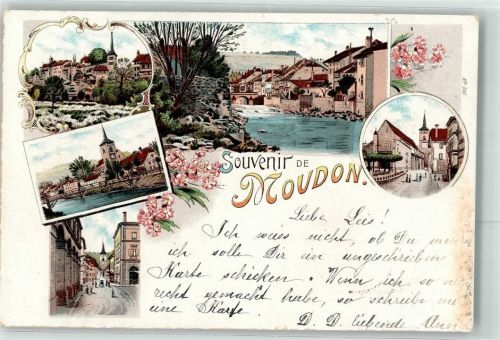 Souvenir DE
MOUDON.
Liebe Lis!
Ich weiss nicht, ob Du
ich solle Dir an ungeschrieben
Karte schicken. Wenn ich so
recht gemacht habe, so schreibe
eine Karte.
D. D. liebende Ann